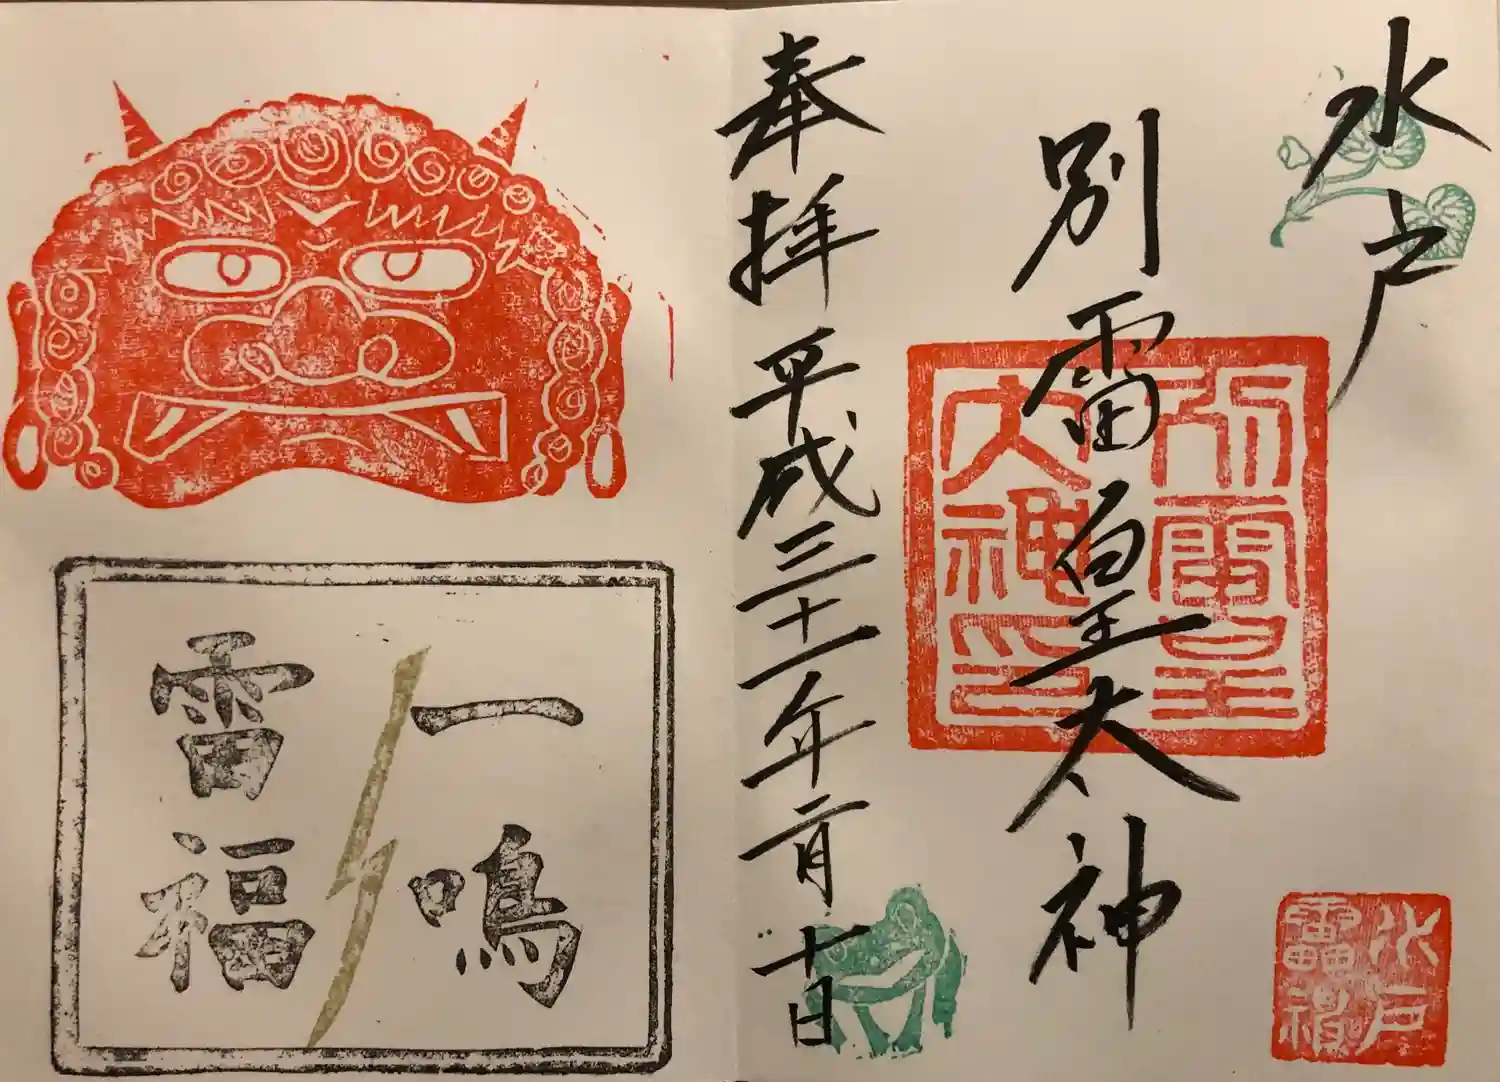 水戸
別雷皇太神
奉拝 平成三十一年二月十日
別雷皇
大神印
水戸
雷神
一鳴
雷福